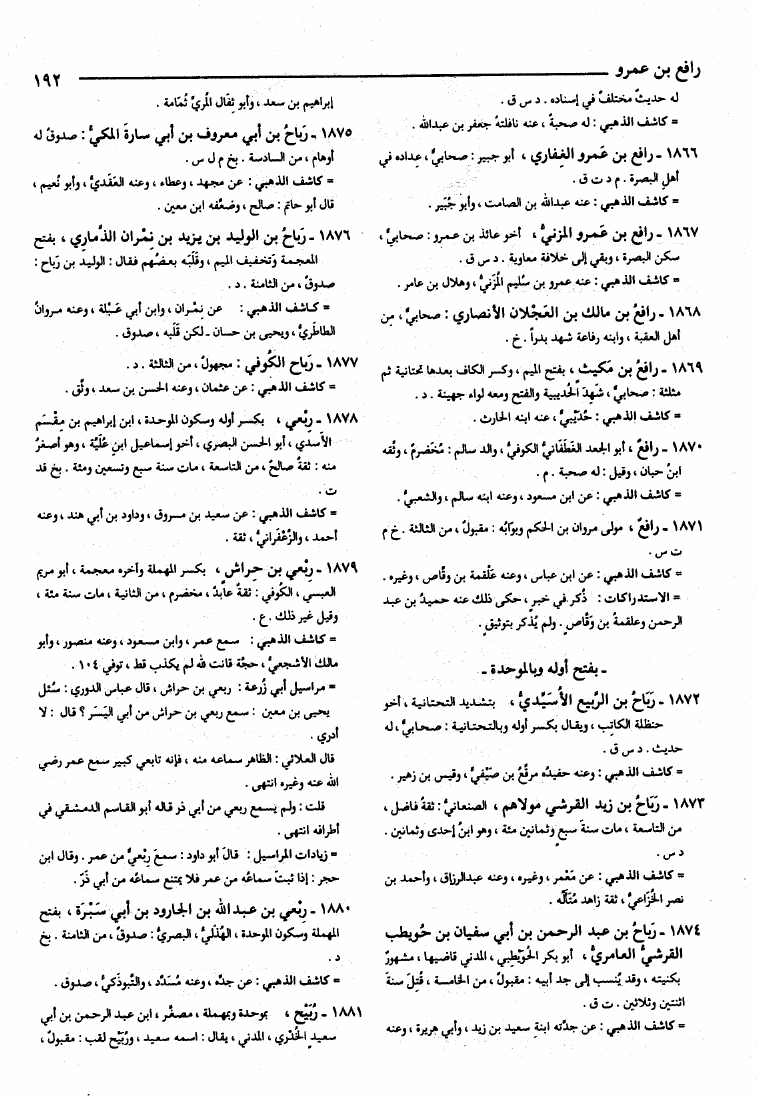 رافع بن عمرو
١٩٢
له حديثٌ مختلفٌ في إسناده . د س ق .
= كاشف الذهبي : له صحبةٌ ، عنه نافلتهُ جعفر بن عبدالله .
١٨٦٦ ـ رافع بن عَمرو الغِفاري ، أبو جبير : صحابيٌّ ، عِداده في
أهلِ البصرة . م د ت ق .
= كاشف الذهبي : عنه عبدالله بن الصامت ، وأبو جُبَير .
١٨٦٧ ـ رافع بن عَمرو المزنيُّ ، أخو عائذ بن عمرو : صحابيٌّ ،
سكن البصرة ، وبقي إلى خلافة معاوية . د س ق .
= كاشف الذهبي : عنه عمرو بن سُليم المُزَنيُّ ، وهلال بن عامر .
١٨٦٨ ـ رافعُ بن مالك بن العَجْلان الأنصاري : صحابيٌّ ، مِن
أهل العقبة ، وابنه رفاعة شهد بدراً . خ .
١٨٦٩ ـ رافعُ بن مَكيث ، بفتح الميم ، وكسر الكاف بعدها تحتانية ثم
مثلثة : صحابيٌّ ، شَهِدَ الحُديبية والفتح ومعه لواء جهينة . د .
= كاشف الذهبي : حُدَيْبيٌّ ، عنه ابنه الحارث .
١٨٧٠ ـ رافعٌ ، أبو الجعد الغَطَفَانيُّ الكوفيُّ ، والد سالم : مُخَضرمٌ ، وثَّقه
ابنُ حبان ، وقيل : له صحبة . م .
= كاشف الذهبي : عن ابن مسعود ، وعنه ابنه سالم ، والشعبيُّ .
١٨٧١ ـ رافعٌ ، مولى مروان بن الحكم وبوّابُه : مقبولٌ ، من الثالثة . خ م
ت س .
= كاشف الذهبي : عن ابن عباس ، وعنه عَلْقمة بن وقّاص ، وغيره .
= الاستدراكات : ذُكر في خبرٍ ، حكى ذلك عنه حميدُ بن عبد
الرحمن وعلقمةُ بن وَقّاصٍ . ولم يُذكر بتوثيقٍ .
ـ بفتح أوله وبالموحدة ـ
١٨٧٢ ـ رَبَاحُ بن الرَّبيع الأُسَيِّديُّ ، بتشديد التحتانية ، أخو
حنظلة الكاتِب ، ويقال بكسر أوله وبالتحتانية : صحابيٌّ ، له
حديث . د س ق .
= كاشف الذهبي : وعنه حفيدُه مرقِّعُ بن صَيْفيٍّ ، وقيس بن زهير .
١٨٧٣ ـ رَبَاحُ بن زيد القرشي مولاهم ، الصنعانيُّ : ثقةٌ فاضل ،
من التاسعة ، مات سنةَ سبعٍ وثمانين مئة ، وهو ابنُ إحدى وثمانين .
د س .
= كاشف الذهبي : عن مَعْمر ، وغيره ، وعنه عبدالرزاق ، وأحمد بن
نصر الخُزَاعيُّ ، ثقة زاهد مُتألِّه .
١٨٧٤ ـ رَباحُ بن عبد الرحمن بن أبي سفيان بن حُويطب
القرشيُّ العامريُّ ، أبو بكر الحُوَيْطِبي ، المدني قاضيها ، مشهورٌ
بكنيته ، وقد يُنسب إلى جد أبيه : مقبولٌ ، من الخامسة ، قُتِلَ سنةَ
اثنتين وثلاثين . ت ق .
= كاشف الذهبي : عن جدَّته ابنةِ سعيد بن زيد ، وأبي هريرة ، وعنه
إبراهيم بن سعد ، وأبو ثِفَال المُريُّ ثُمَامة .
١٨٧٥ ـ رَباحُ بن أبي معروف بن أبي سارةَ المكيُّ : صدوقٌ له
أوهام ، من السادسة . بخ م ل س .
= كاشف الذهبي : عن مجهد ، وعطاء ، وعنه العَقَديُّ ، وأبو نُعيم ،
قال أبو حاتم : صالح ، وضعَّفه ابن معين .
١٨٧٦ ـ رَباحُ بن الوليد بن يزيد بن نِمْران الذَّماري ، بفتح
المعجمة وتخفيف الميم ، وقَلَبَه بعضُهم فقال : الوليد بن رَباح :
صدوقٌ ، من الثامنة . د .
= كاشف الذهبي : عن نِمْران ، وابن أبي عَبْلة ، وعنه مروانُ
الطاطَريُّ ، ويحيى بن حسان ـ لكن قَلَبه ، صدوق .
١٨٧٧ ـ رَباح الكُوفي : مجهولٌ ، من الثالثة . د .
= كاشف الذهبي : عن عثمان ، وعنه الحسن بن سعد ، وثِّق .
١٨٧٨ ـ رِبْعي ، بكسر أوله وسكون الموحدة ، ابن إبراهيم بن مِقْسَم
الأسدي ، أبو الحسن البصري ، أخو إسماعيل ابن عُلَيَّة ، وهو أصغرُ
منه : ثقةٌ صالحٌ ، من التاسعة ، مات سنة سبع وتسعين ومئة . بخ قد
ت .
= كاشف الذهبي : عن سعيد بن مسروق ، وداود بن أبي هند ، وعنه
أحمد ، والزَّعْفَرانيُّ ، ثقة .
١٨٧٩ ـ رِبْعي بن حِراش ، بكسر المهملة وآخره معجمة ، أبو مريم
العبسي ، الكُوفي : ثقةٌ عابدٌ ، مخضرم ، من الثانية ، مات سنة مئة ،
وقيل غير ذلك . ع .
= كاشف الذهبي : سمع عمر ، وابن مسعود ، وعنه منصور ، وأبو
مالك الأشجعيُّ ، حجَّة قانت لله لم يكذب قط ، توفي ١٠٤ .
= مراسيل أبي زُرعة : ربعي بن حراش ، قال عباس الدوري : سُئل
يحيى بن معين : سمع ربعي بن حراش من أبي اليَسَر ؟ قال : لا
أدري .
قال العلائي : الظاهر سماعه منه ، فإنه تابعي كبير سمع عمر رضي
الله عنه وغيره انتهى .
قلت : ولم يسمع ربعي من أبي ذر قاله أبو القاسم الدمشقي في
أطرافه انتهى .
= زيادات المراسيل : قالَ أبو داود : سمعَ رِبْعيٌّ من عمر . وقال ابن
حجر : إذا ثبتَ سماعُه من عمر فلا يمتنع سماعُه من أبي ذَرّ .
١٨٨٠ ـ رِبْعي بن عبدالله بن الجارود بن أبي سَبْرَة ، بفتح
المهملة وسكون الموحدة ، الهُذَليُّ ، البصريُّ : صدوقٌ ، من الثامنة . بخ
د .
= كاشف الذهبي : عن جدِّه ، وعنه مُسَدَّد ، والتَّبوذَكيُّ ، صدوق .
١٨٨١ ـ رُبَيْح ، بموحدة وبمهملة ، مصغَّر ، ابن عبد الرحمن بن أبي
سعيدٍ الخُدْري ، المدني ، يقال : اسمه سعيد ، ورُبَيْح لقب : مقبولٌ ،